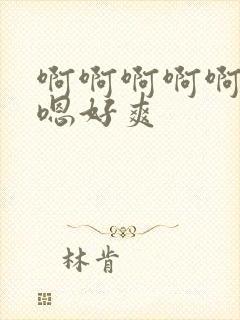 啊啊啊啊啊
嗯好爽
林肯